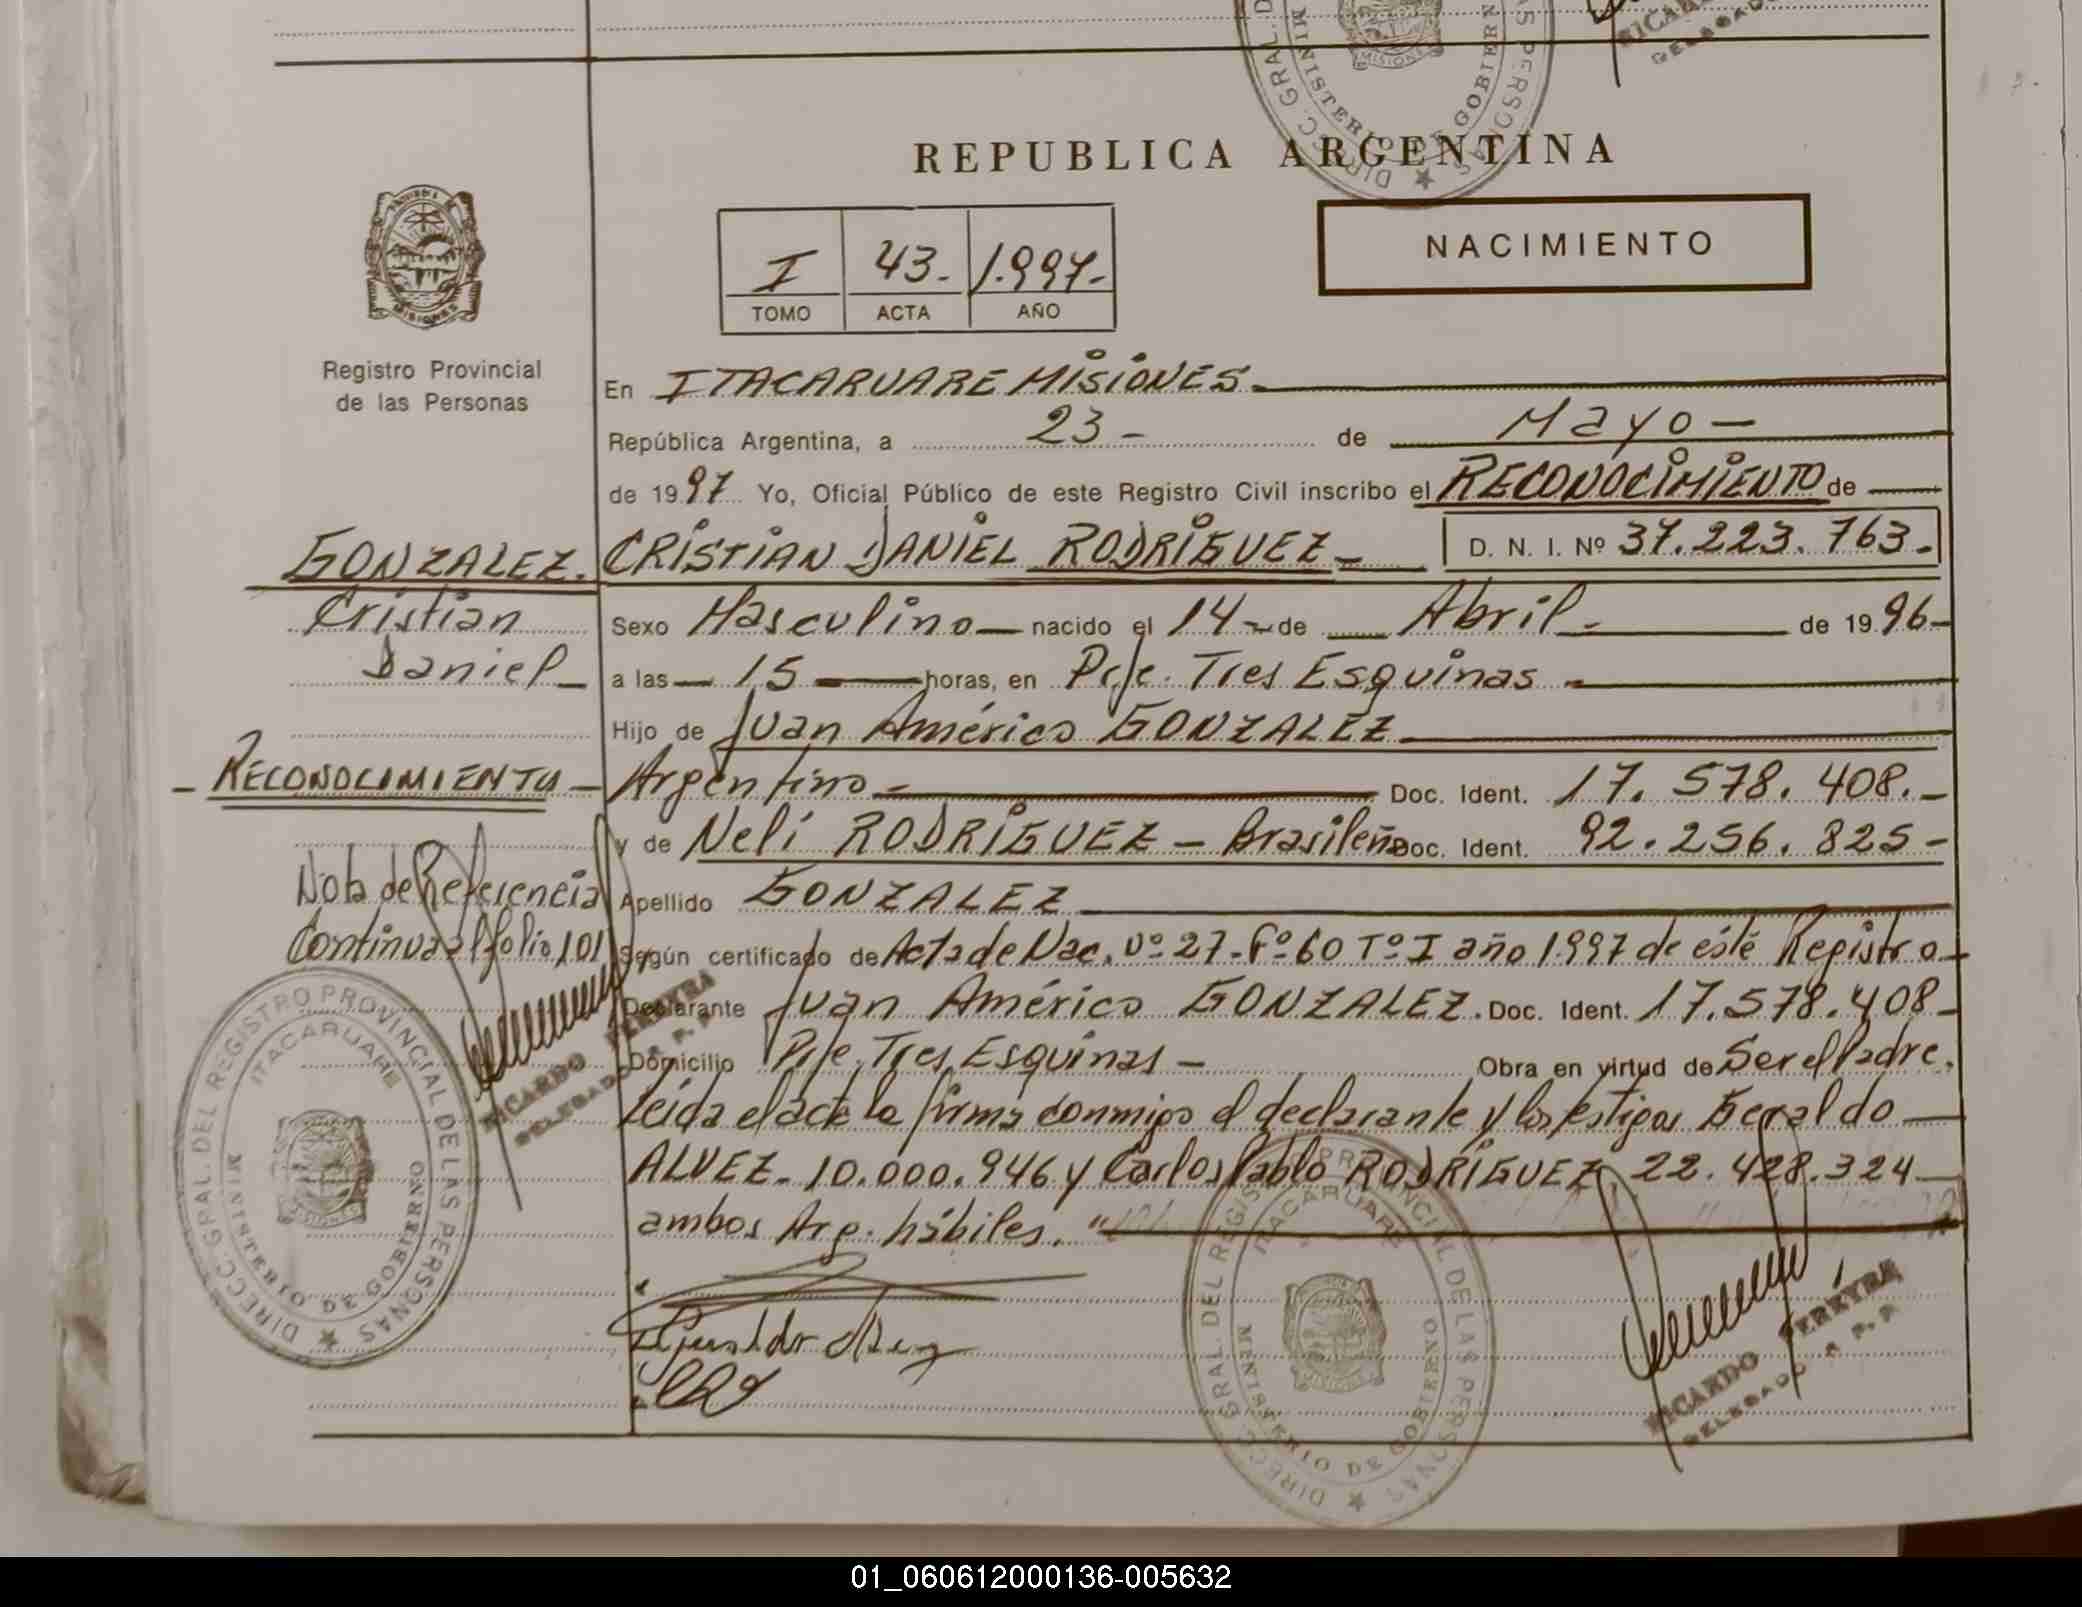 REPUBLICA ARGENTINA
NACIMIENTO
I 43- 1.997-
TOMO ACTA AÑO
Registro Provincial
de las Personas
En ITACARUARE MISIONES-
República Argentina, a 23- de Mayo-
de 1997 Yo, Oficial Público de este Registro Civil inscribo el RECONOCIMIENTO de
GONZALEZ.
Cristian
Daniel-
- RECONOCIMIENTO -
CRISTIAN DANIEL RODRIGUEZ- D. N. I. Nº 37.223.763.-
Sexo Masculino- nacido el 14- de Abril- de 1996-
a las 15 horas, en Pje. Tres Esquinas-
Hijo de Juan Américo GONZALEZ
Argentino- Doc. Ident. 17.578.408.-
y de Neli RODRIGUEZ - Brasileña Doc. Ident. 92.256.825-
Nota de Referencia
Continua al folio 101
Apellido GONZALEZ
Según certificado de Acta de Nac. Nº 27-Fº 60 Tº I año 1.997 de éste Registro-
Declarante Juan Américo GONZALEZ. Doc. Ident. 17.578.408-
Domicilio Pje. Tres Esquinas- Obra en virtud de Ser el Padre.
Leída el acta la firma conmigo el declarante y los testigos Geraldo
ALVEZ- 10.000.946 y Carlos Pablo RODRIGUEZ, 22.428.324
ambos Arg. hábiles.
DIRECC. GRAL. DEL REGISTRO PROVINCIAL DE LAS PERSONAS
ITACARUARE
MINISTERIO DE GOBIERNO
MISIONES
RICARDO PEREYRA
DELEGADO R. P. P.
DIRECC. GRAL. DEL REGISTRO PROVINCIAL DE LAS PERSONAS
ITACARUARE
MINISTERIO DE GOBIERNO
RICARDO PEREYRA
DELEGADO R. P. P.
01_060612000136-005632